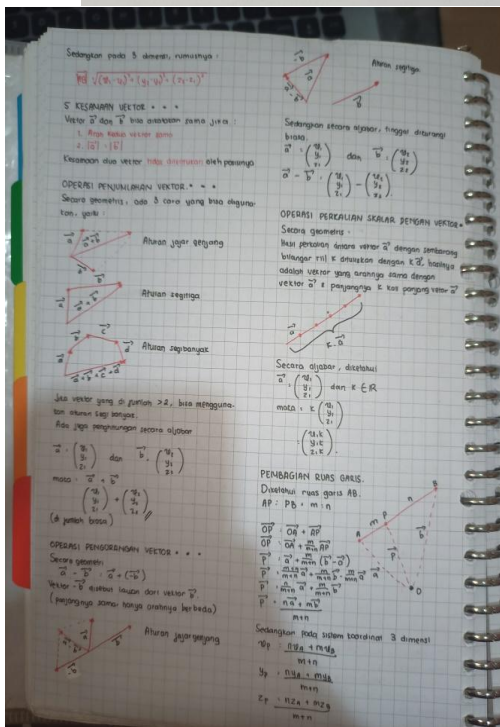 Sedangkan pada 3 dimensi, rumusnya :
5 KESAMAAN VEKTOR
Vektor a⃗ dan b⃗ bisa dikatakan sama jika :
1. Arah kedua vektor sama
2. |a⃗| = |b⃗|
Kesamaan dua vektor tidak ditentukan oleh posisinya
OPERASI PENJUMLAHAN VEKTOR
Secara geometris, ada 3 cara yang bisa diguna-
kan, yaitu :
Aturan jajar genjang
Aturan segitiga
Aturan segibanyak
a⃗ + b⃗ + c⃗ + d⃗
Jika vektor yang di jumlah >2, bisa mengguna-
kan aturan segi banyak.
Ada juga penghitungan secara aljabar
a⃗ = (x₁ y₁ z₁) dan b⃗ = (x₂ y₂ z₂)
maka : a⃗ + b⃗
(x₁ y₁ z₁) + (x₂ y₂ z₂)
(di jumlah biasa)
OPERASI PENGURANGAN VEKTOR
Secara geometri
a⃗ - b⃗ = a⃗ + (-b⃗)
Vektor -b⃗ disebut lawan dari vektor b⃗.
(panjangnya sama, hanya arahnya berbeda)
Aturan jajargenjang
Aturan segitiga
Sedangkan secara aljabar, tinggal dikurangi
biasa.
a⃗ = (x₁ y₁ z₁) dan b⃗ = (x₂ y₂ z₂)
a⃗ - b⃗ = (x₁ y₁ z₁) - (x₂ y₂ z₂)
OPERASI PERKALIAN SKALAR DENGAN VEKTOR
Secara geometris :
Hasil perkalian antara vektor a⃗ dengan sembarang
bilangan riil k dituliskan dengan k a⃗, hasilnya
adalah vektor yang arahnya sama dengan
vektor a⃗ & panjangnya k kali panjang vektor a⃗
k . a⃗
Secara aljabar, diketahui
a⃗ = (x₁ y₁ z₁) dan k ∈ R
maka : k (x₁ y₁ z₁)
= (x₁k y₁k z₁k)
PEMBAGIAN RUAS GARIS.
Diketahui ruas garis AB.
AP : PB = m : n
OP = OA + AP
p⃗ = a⃗ + m/m+n (b⃗ - a⃗)
p⃗ = na⃗ + mb⃗ / m+n
Sedangkan pada sistem koordinat 3 dimensi
xp = nxA + mxB / m+n
yp = nyA + myB / m+n
zp = nzA + mzB / m+n